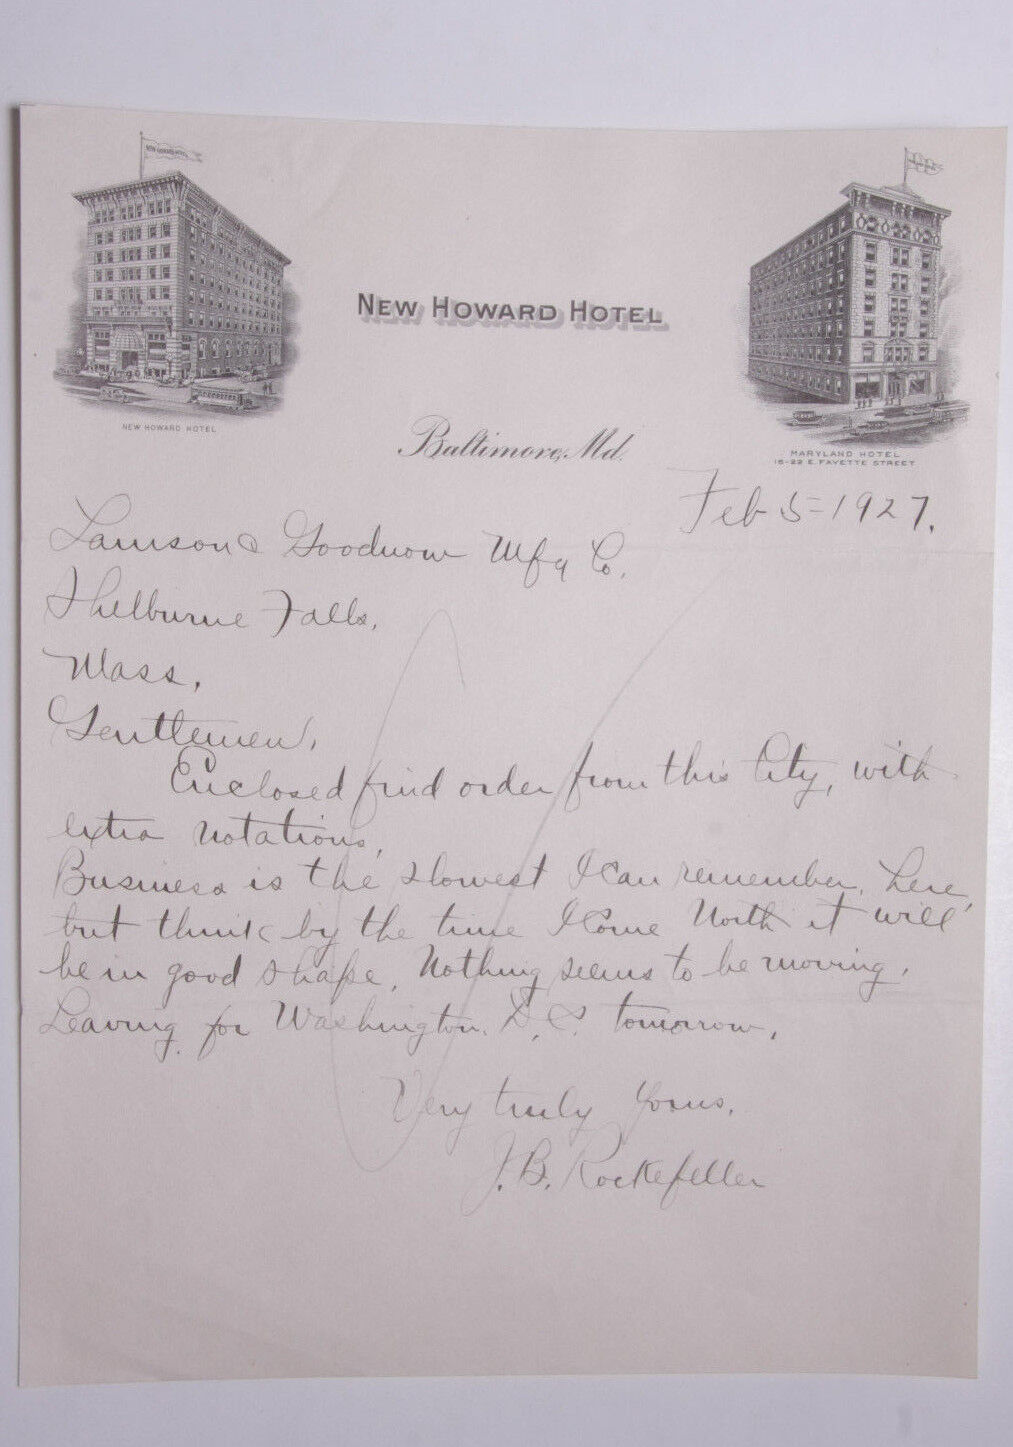 NEW HOWARD HOTEL
NEW HOWARD HOTEL
NEW HOWARD HOTEL
Baltimore, Md.
MARYLAND HOTEL
16-22 E. FAYETTE STREET
Feb 5-1927.
Lamson & Goodnow Mfg Co.
Shelburne Falls,
Mass.
Gentlemen,
Enclosed find order from this City, with
extra notations,
Business is the slowest I can remember, here,
but think by the time I come North it will
be in good shape, Nothing seems to be moving,
Leaving for Washington, D.C. tomorrow,
Very truly yours,
J. B. Rockefeller